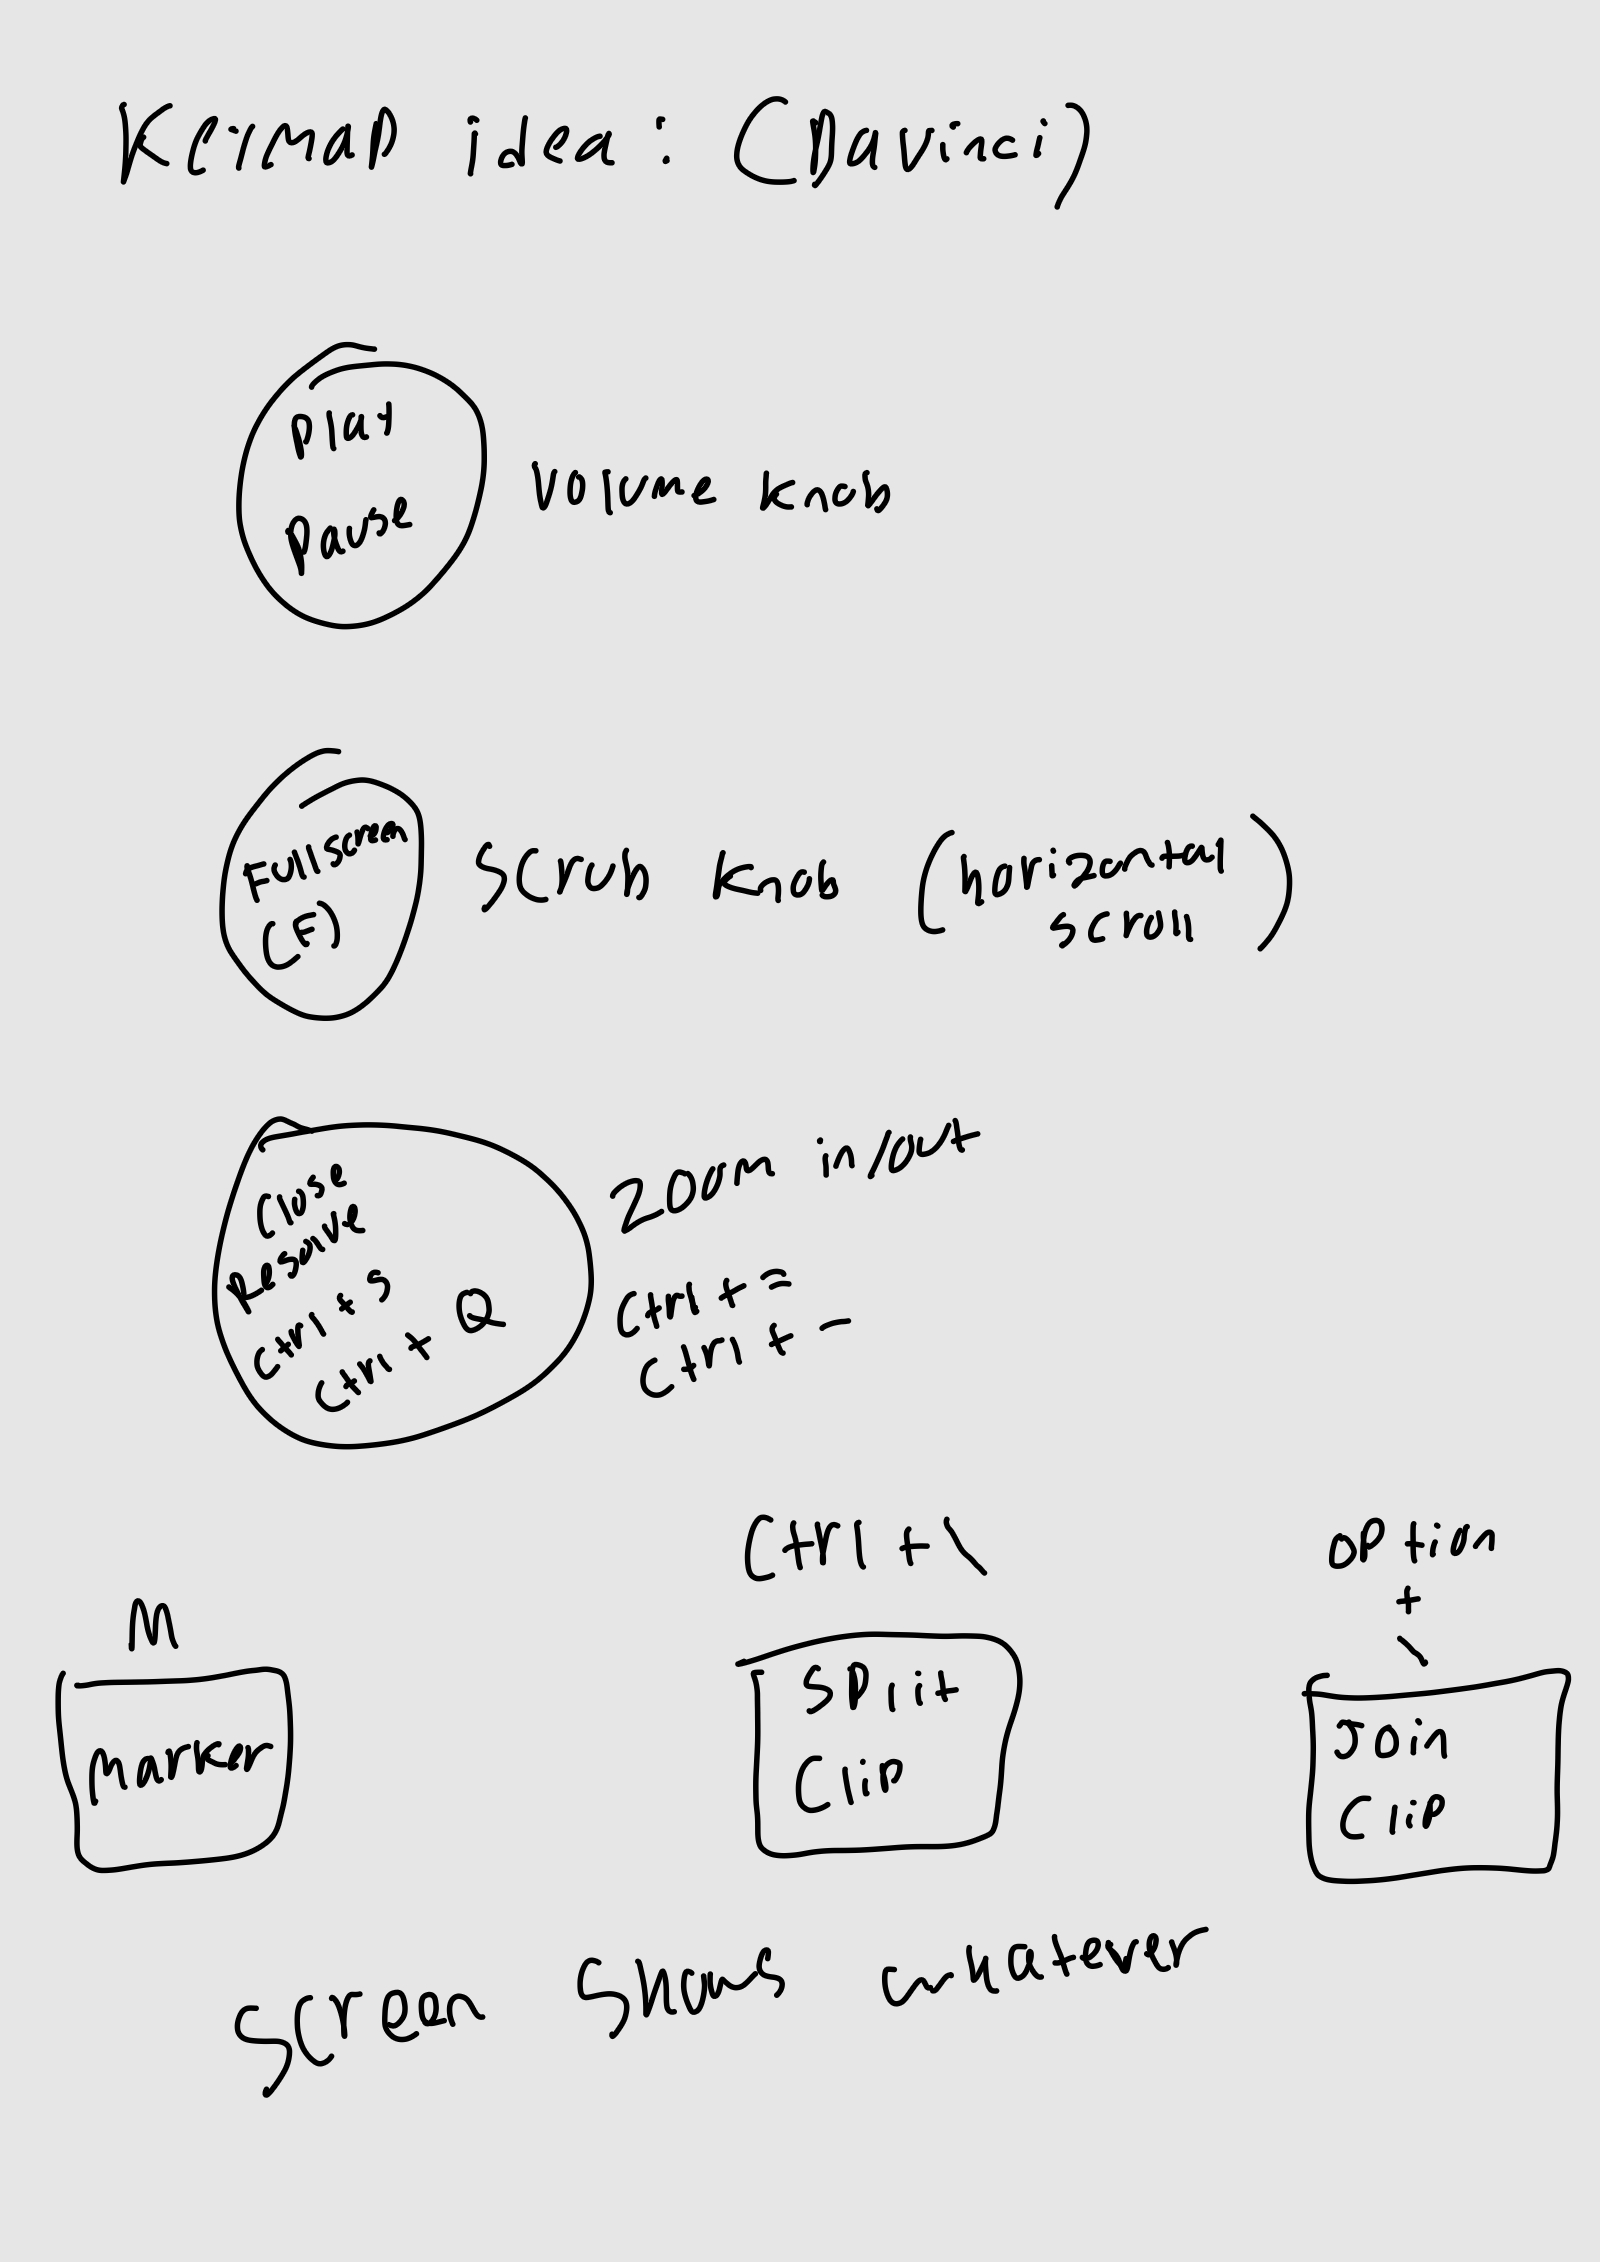 Keymap idea: (Davinci)
Play
Pause
Volume knob
Fullscreen
(F)
Scrub knob (horizontal
scroll)
Close
Resolve
Ctrl + S
Ctrl + Q
Zoom in/out
Ctrl + =
Ctrl + -
M
Marker
Ctrl + \
Split
Clip
option
+
\
Join
Clip
Screen Shows whatever